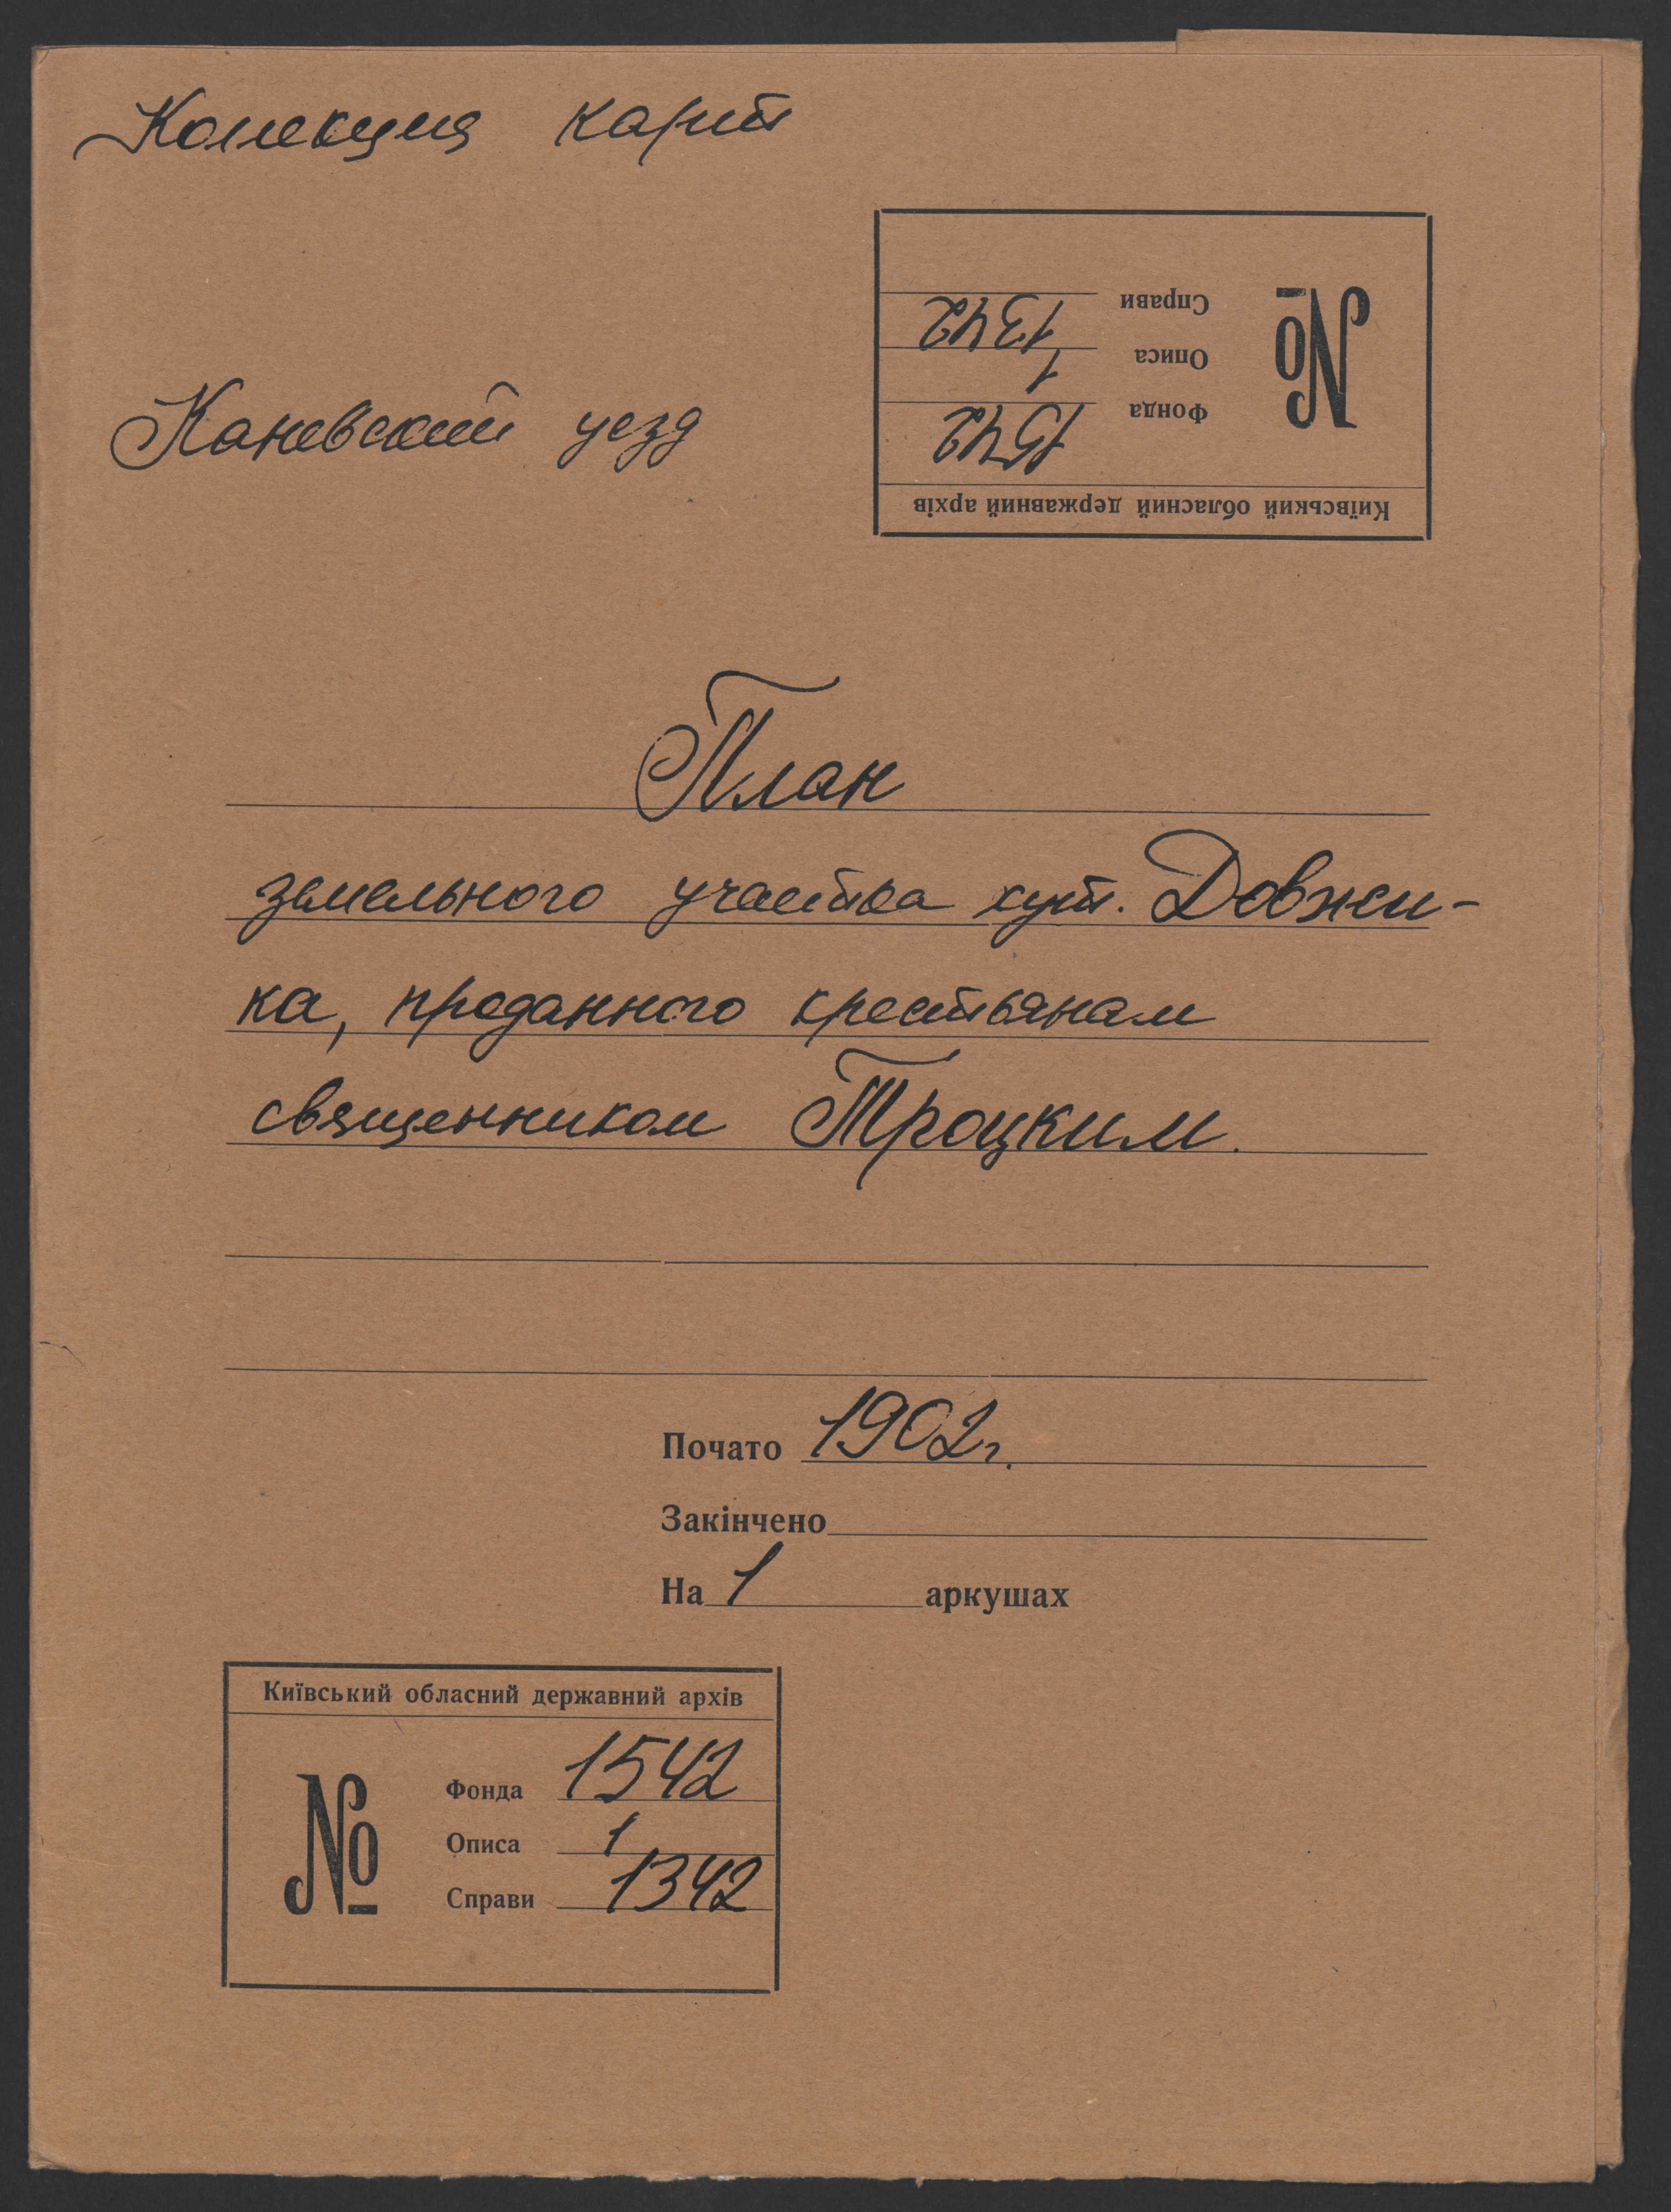 Колекция карт
Справи 1342
Описа 1
Фонда 1542
№
Київський обласний державний архів
Каневский уезд
План
земельного участка хут. Довжи-
ка, проданного крестьянам
священником Троцким.
Почато 1902г.
Закінчено
На 1 аркушах
Київський обласний державний архів
№
Фонда 1542
Описа 1
Справи 1342